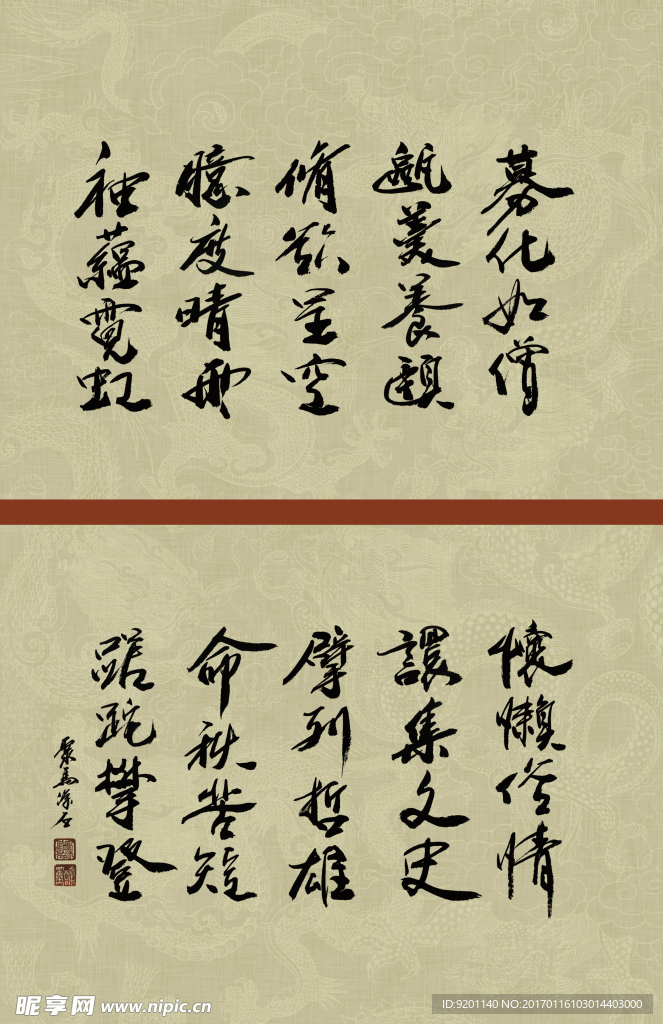 募化如僧
甌羹養頤
脩欲呈空
臆度晴雨
袖蘊霓虹
懷懶俗情
集文史
擘列哲雄
命秋苦短
蹉跎攀登
昵享网 www.nipic.cn
ID:9201140 NO:20170116103014403000